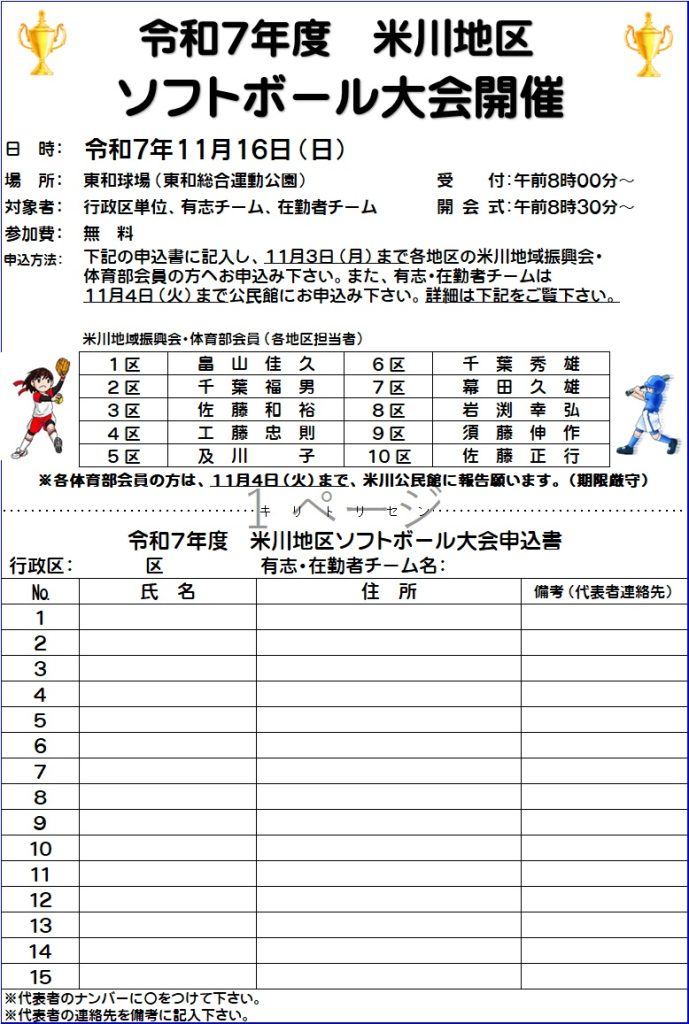 令和7年度　米川地区
ソフトボール大会開催
日　時：　令和7年11月16日（日）
場　所：　東和球場（東和総合運動公園）　受　付：午前8時00分～
対象者：　行政区単位、有志チーム、在勤者チーム　開 会 式：午前8時30分～
参加費：　無　料
申込方法：　下記の申込書に記入し、11月3日（月）まで各地区の米川地域振興会・
体育部会員の方へお申込み下さい。また、有志・在勤者チームは
11月4日（火）まで公民館にお申込み下さい。詳細は下記をご覧下さい。
米川地域振興会・体育部会員（各地区担当者）
1区　畠山佳久　6区　千葉秀雄
2区　千葉福男　7区　幕田久雄
3区　佐藤和裕　8区　岩渕幸弘
4区　工藤忠則　9区　須藤伸作
5区　及川　子　10区　佐藤正行
※各体育部会員の方は、11月4日（火）まで、米川公民館に報告願います。（期限厳守）
1 ページ
キリトリセン
令和7年度　米川地区ソフトボール大会申込書
行政区：　　区　　有志・在勤者チーム名：
No.　氏　名　住　所　備考（代表者連絡先）
1
2
3
4
5
6
7
8
9
10
11
12
13
14
15
※代表者のナンバーに〇をつけて下さい。
※代表者の連絡先を備考に記入下さい。